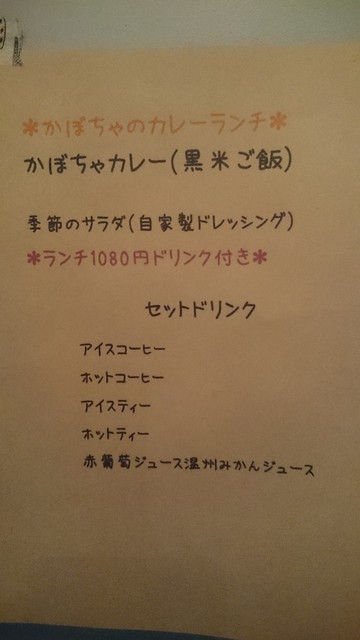 *かぼちゃのカレーランチ*
かぼちゃカレー(黒米ご飯)
季節のサラダ(自家製ドレッシング)
*ランチ1080円ドリンク付き*
セットドリンク
アイスコーヒー
ホットコーヒー
アイスティー
ホットティー
赤葡萄ジュース温州みかんジュース